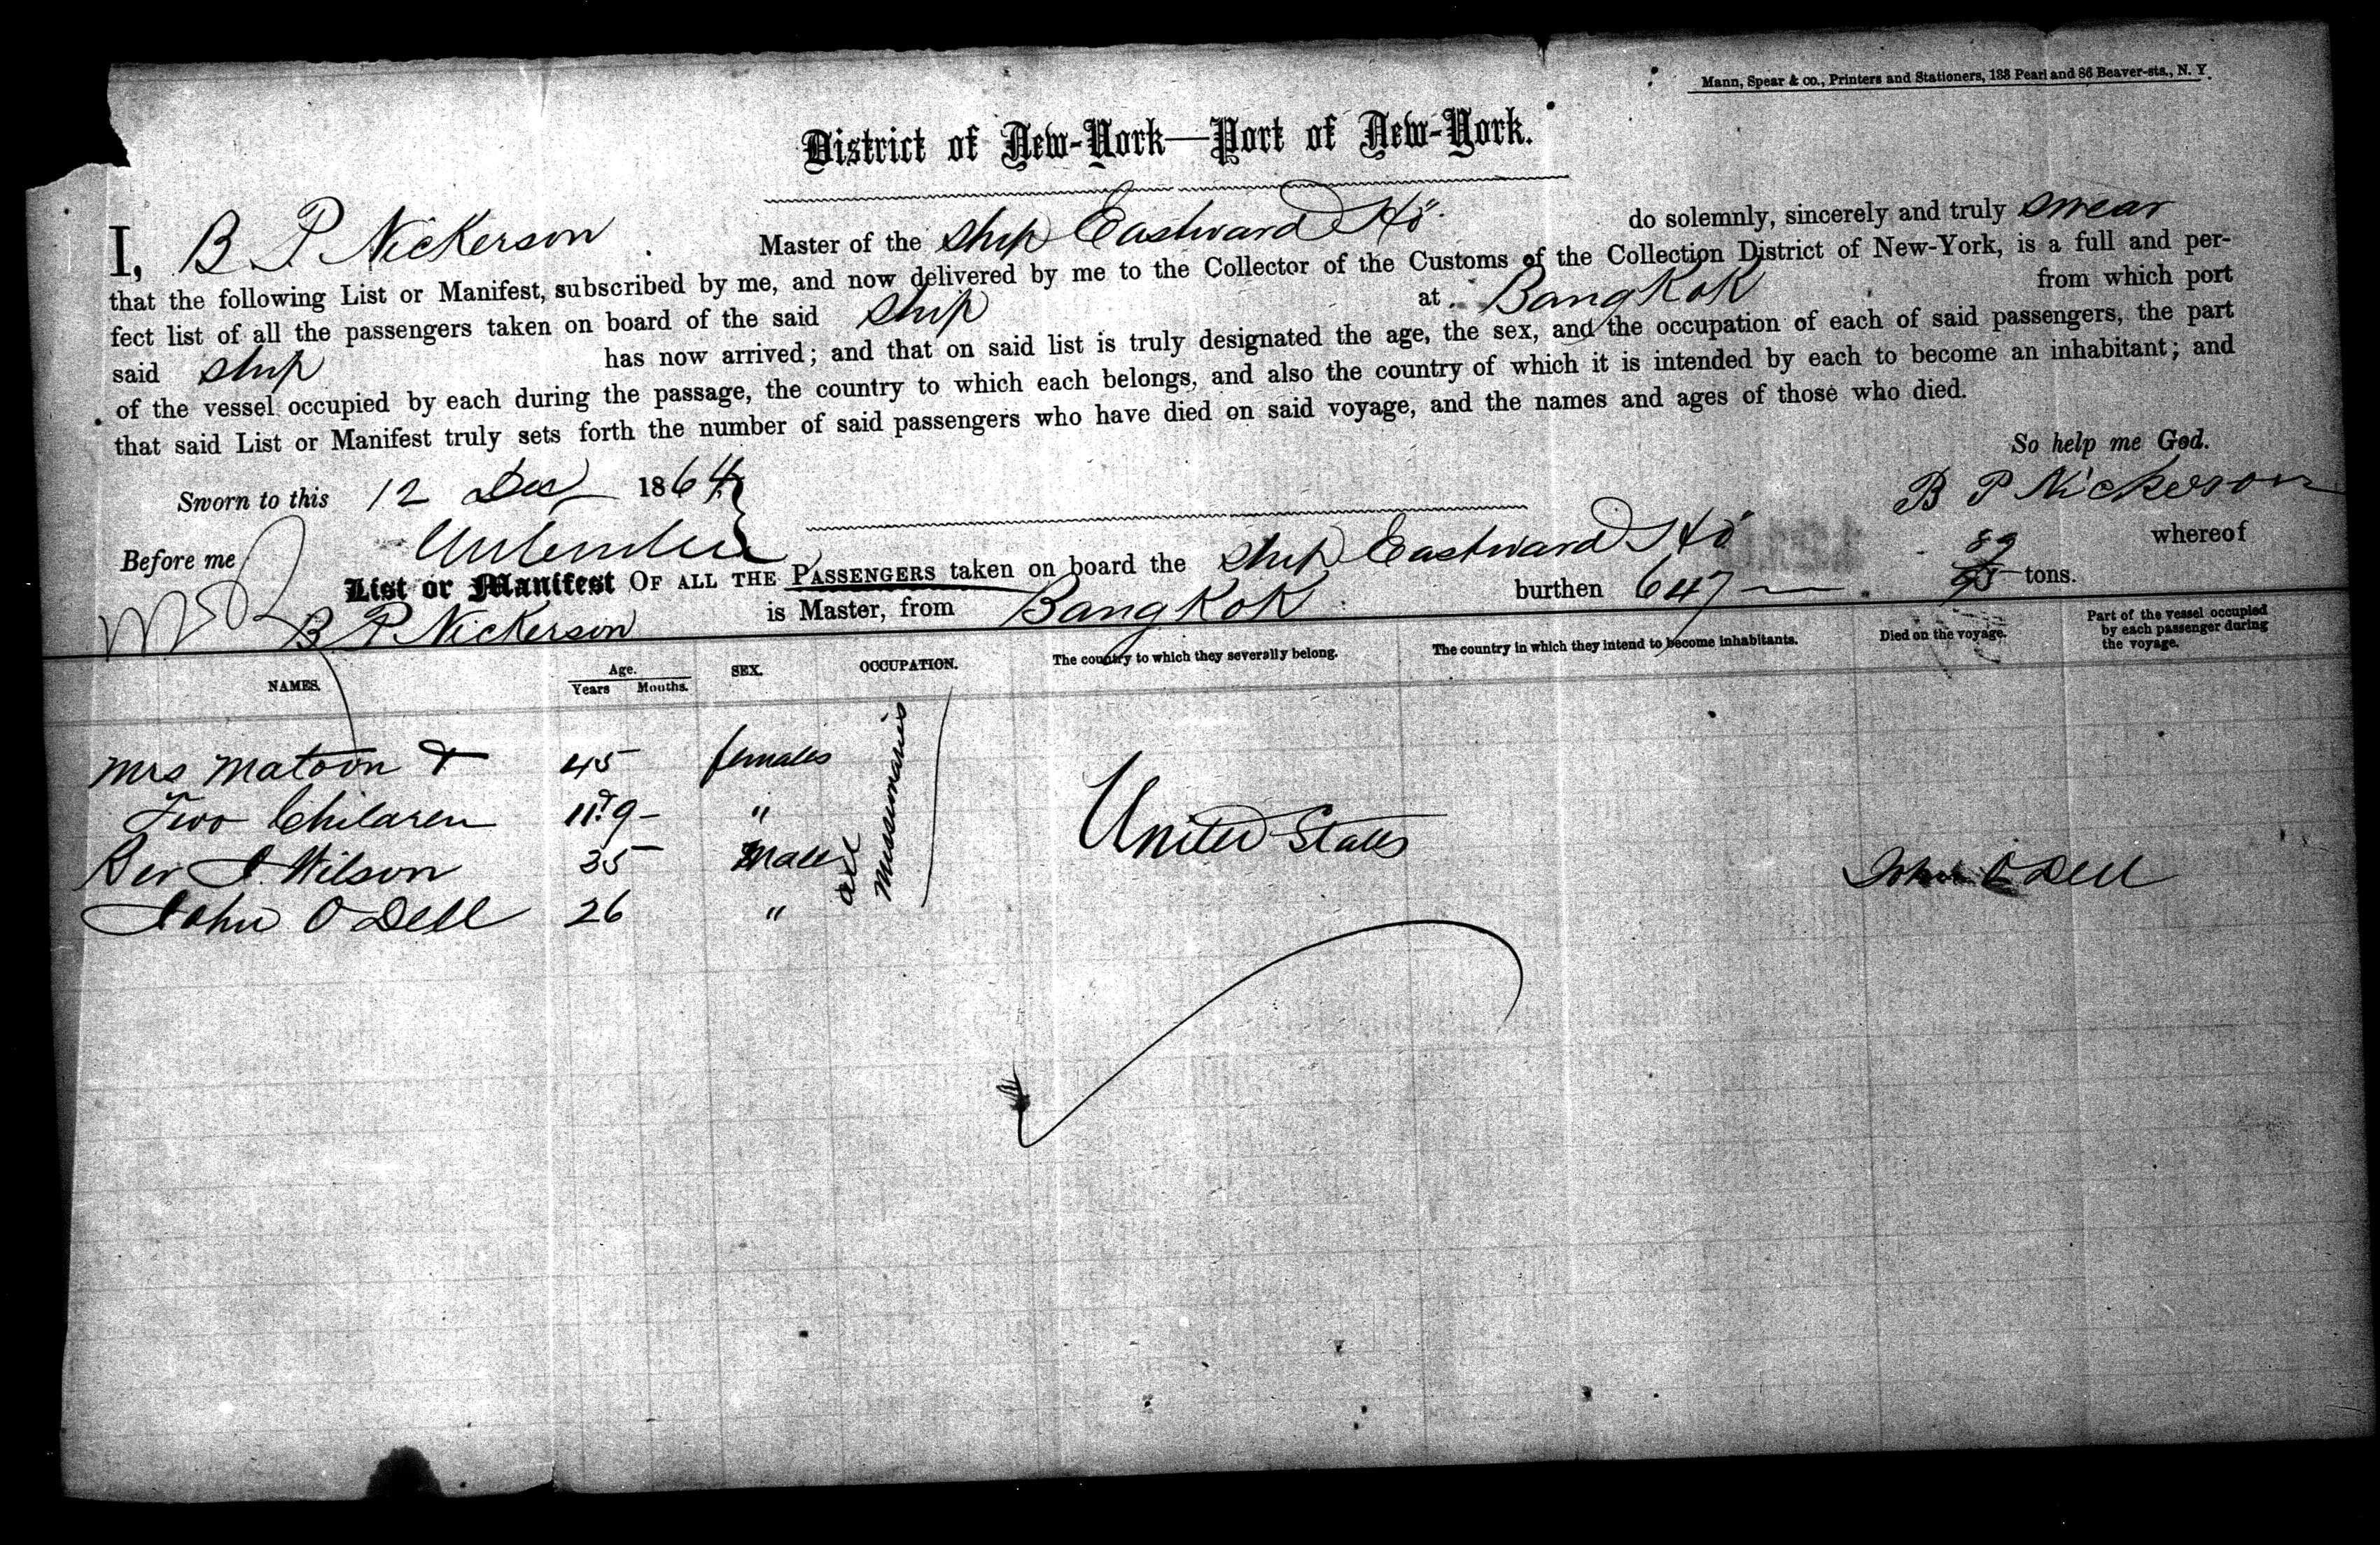 Mann, Spear & co., Printers and Stationers, 138 Pearl and 86 Beaver-sts., N. Y.
District of New-York—Port of New-York.
I, B P Nickerson Master of the Ship Eastward Ho do solemnly, sincerely and truly swear
that the following List or Manifest, subscribed by me, and now delivered by me to the Collector of the Customs of the Collection District of New-York, is a full and per-
fect list of all the passengers taken on board of the said Ship at Bangkok from which port
said Ship has now arrived; and that on said list is truly designated the age, the sex, and the occupation of each of said passengers, the part
of the vessel occupied by each during the passage, the country to which each belongs, and also the country of which it is intended by each to become an inhabitant; and
that said List or Manifest truly sets forth the number of said passengers who have died on said voyage, and the names and ages of those who died.
So help me God.
Sworn to this 12 Dec 1864
B P Nickerson
Before me
List or Manifest OF ALL THE PASSENGERS taken on board the Ship Eastward Ho whereof
B P Nickerson is Master, from Bangkok burthen 647 89/95 tons.
NAMES. Age. Years Months. SEX. OCCUPATION. The country to which they severally belong. The country in which they intend to become inhabitants. Died on the voyage. Part of the vessel occupied by each passenger during the voyage.
Mrs Matoon & 45 females
Two Children 11 & 9 "
Rev J. Wilson 35 Male
John O Dell 26 "
all Missionaries
United States
John O Dell